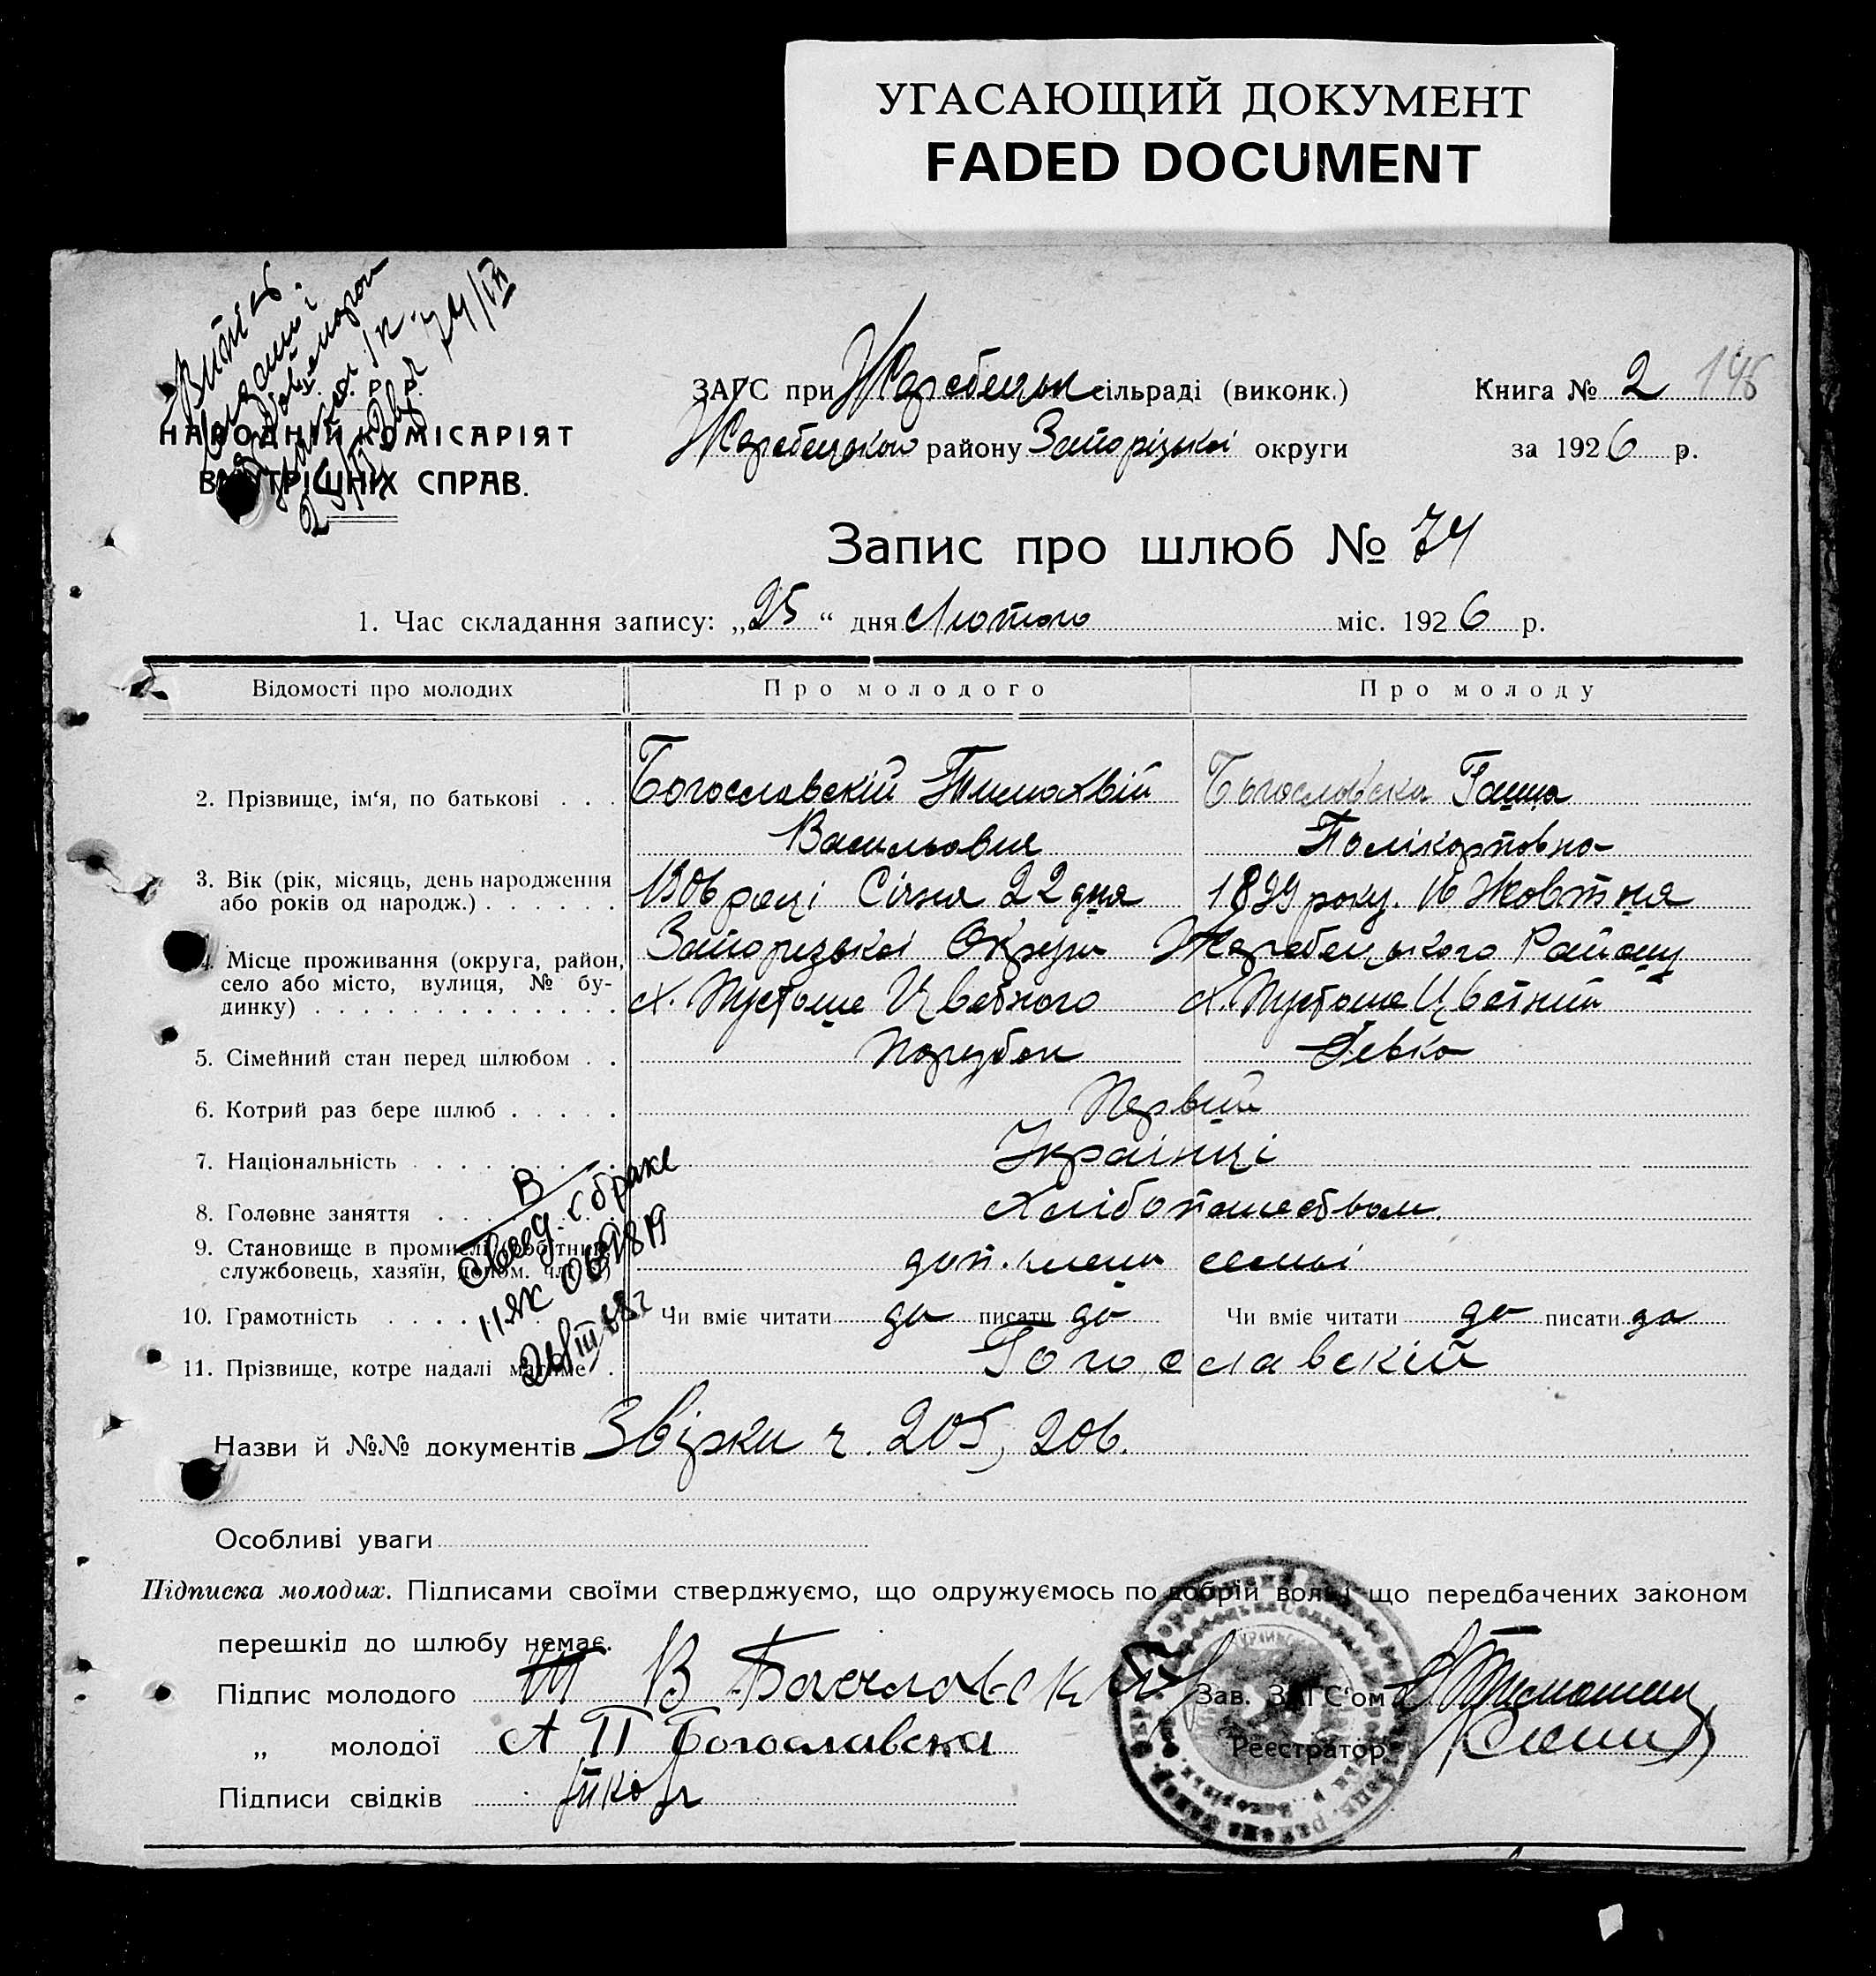 УГАСАЮЩИЙ ДОКУМЕНТ
FADED DOCUMENT
НАРОДНІЙ КОМІСАРІЯТ
ВНУТРІШНІХ СПРАВ.
ЗАГС при Жеребецьк сільраді (виконк.) Книга № 2 148
Жеребецького району Запорізькоі округи за 1926 р.
Запис про шлюб № 74
1. Час складання запису: „25“ дня Лютого міс. 1926 р.
Відомості про молодих Про молодого Про молоду
2. Прізвище, ім‘я, по батькові . . . Богославскій Тимохвій Богословска Ганна
Васильовия Полікарповна
3. Вік (рік, місяць, день народження
або років од народж.) . . . . . . 1906 році Січня 22 дня 1899 року. 16 Жовтня
4. Місце проживання (округа, район,
село або місто, вулиця, № бу-
динку) . . . . . . . . . . . . .
Запорizькоі Округи Жеребецького Району
х. Пустоше Цветного х. Пустоше Цветний
5. Сімейний стан перед шлюбом . . Парубок Девка
6. Котрий раз бере шлюб . . . . . Первий
7. Національність . . . . . . . . Украінці
8. Головне заняття . . . . . Хлібопашеством.
9. Становище в промислі
службовець, хазяїн, допом. чл.
доп. члени семьі
10. Грамотність . . . . . Чи вміє читати да писати да Чи вміє читати да писати да
11. Прізвище, котре надалі матиме . Богославскій
В
Свед. с браке
11ЯК 069819
Назви й №№ документів Звірки ч. 205, 206.
Особливі уваги
Підписка молодих. Підписами своїми стверджуємо, що одружуємось по добрій волі й що передбачених законом
перешкід до шлюбу немає.
Підпис молодого Т В Богословский Зав. ЗАГС‘ом
„ молодої А П Богославска Реєстратор
Підписи свідків